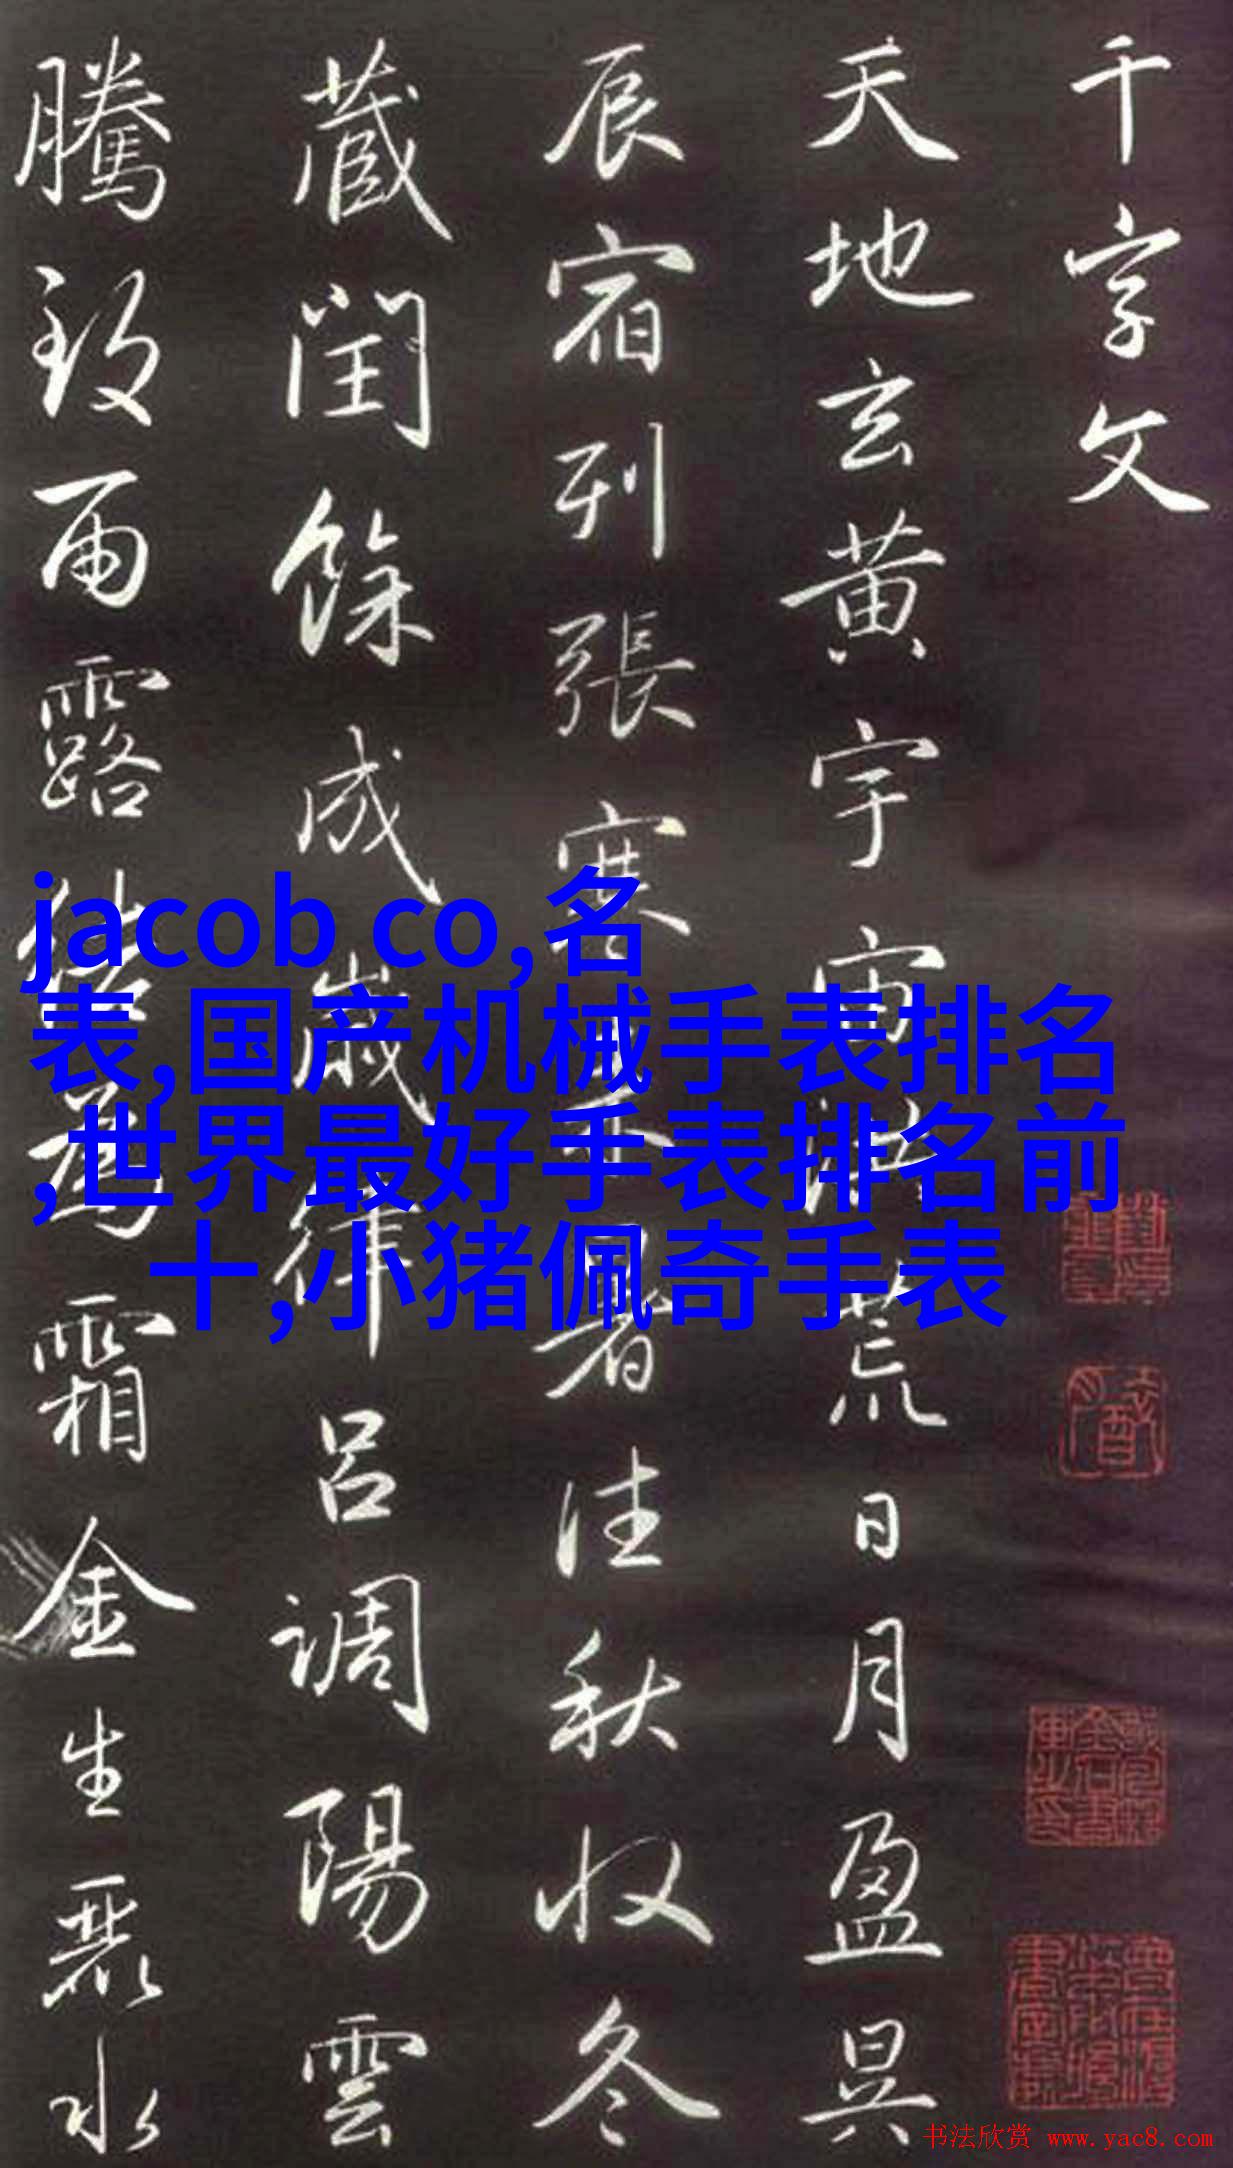 千字文
天地玄黄宇宙洪荒日月盈昃
辰宿列張寒来暑往秋收冬
藏閏餘成歲律吕調陽雲
騰致雨露結為霜金生麗水
jacob co,名
表,国产机械手表排名
,世界最好手表排名前
十,小猪佩奇手表
书法欣赏 www.yac8.com